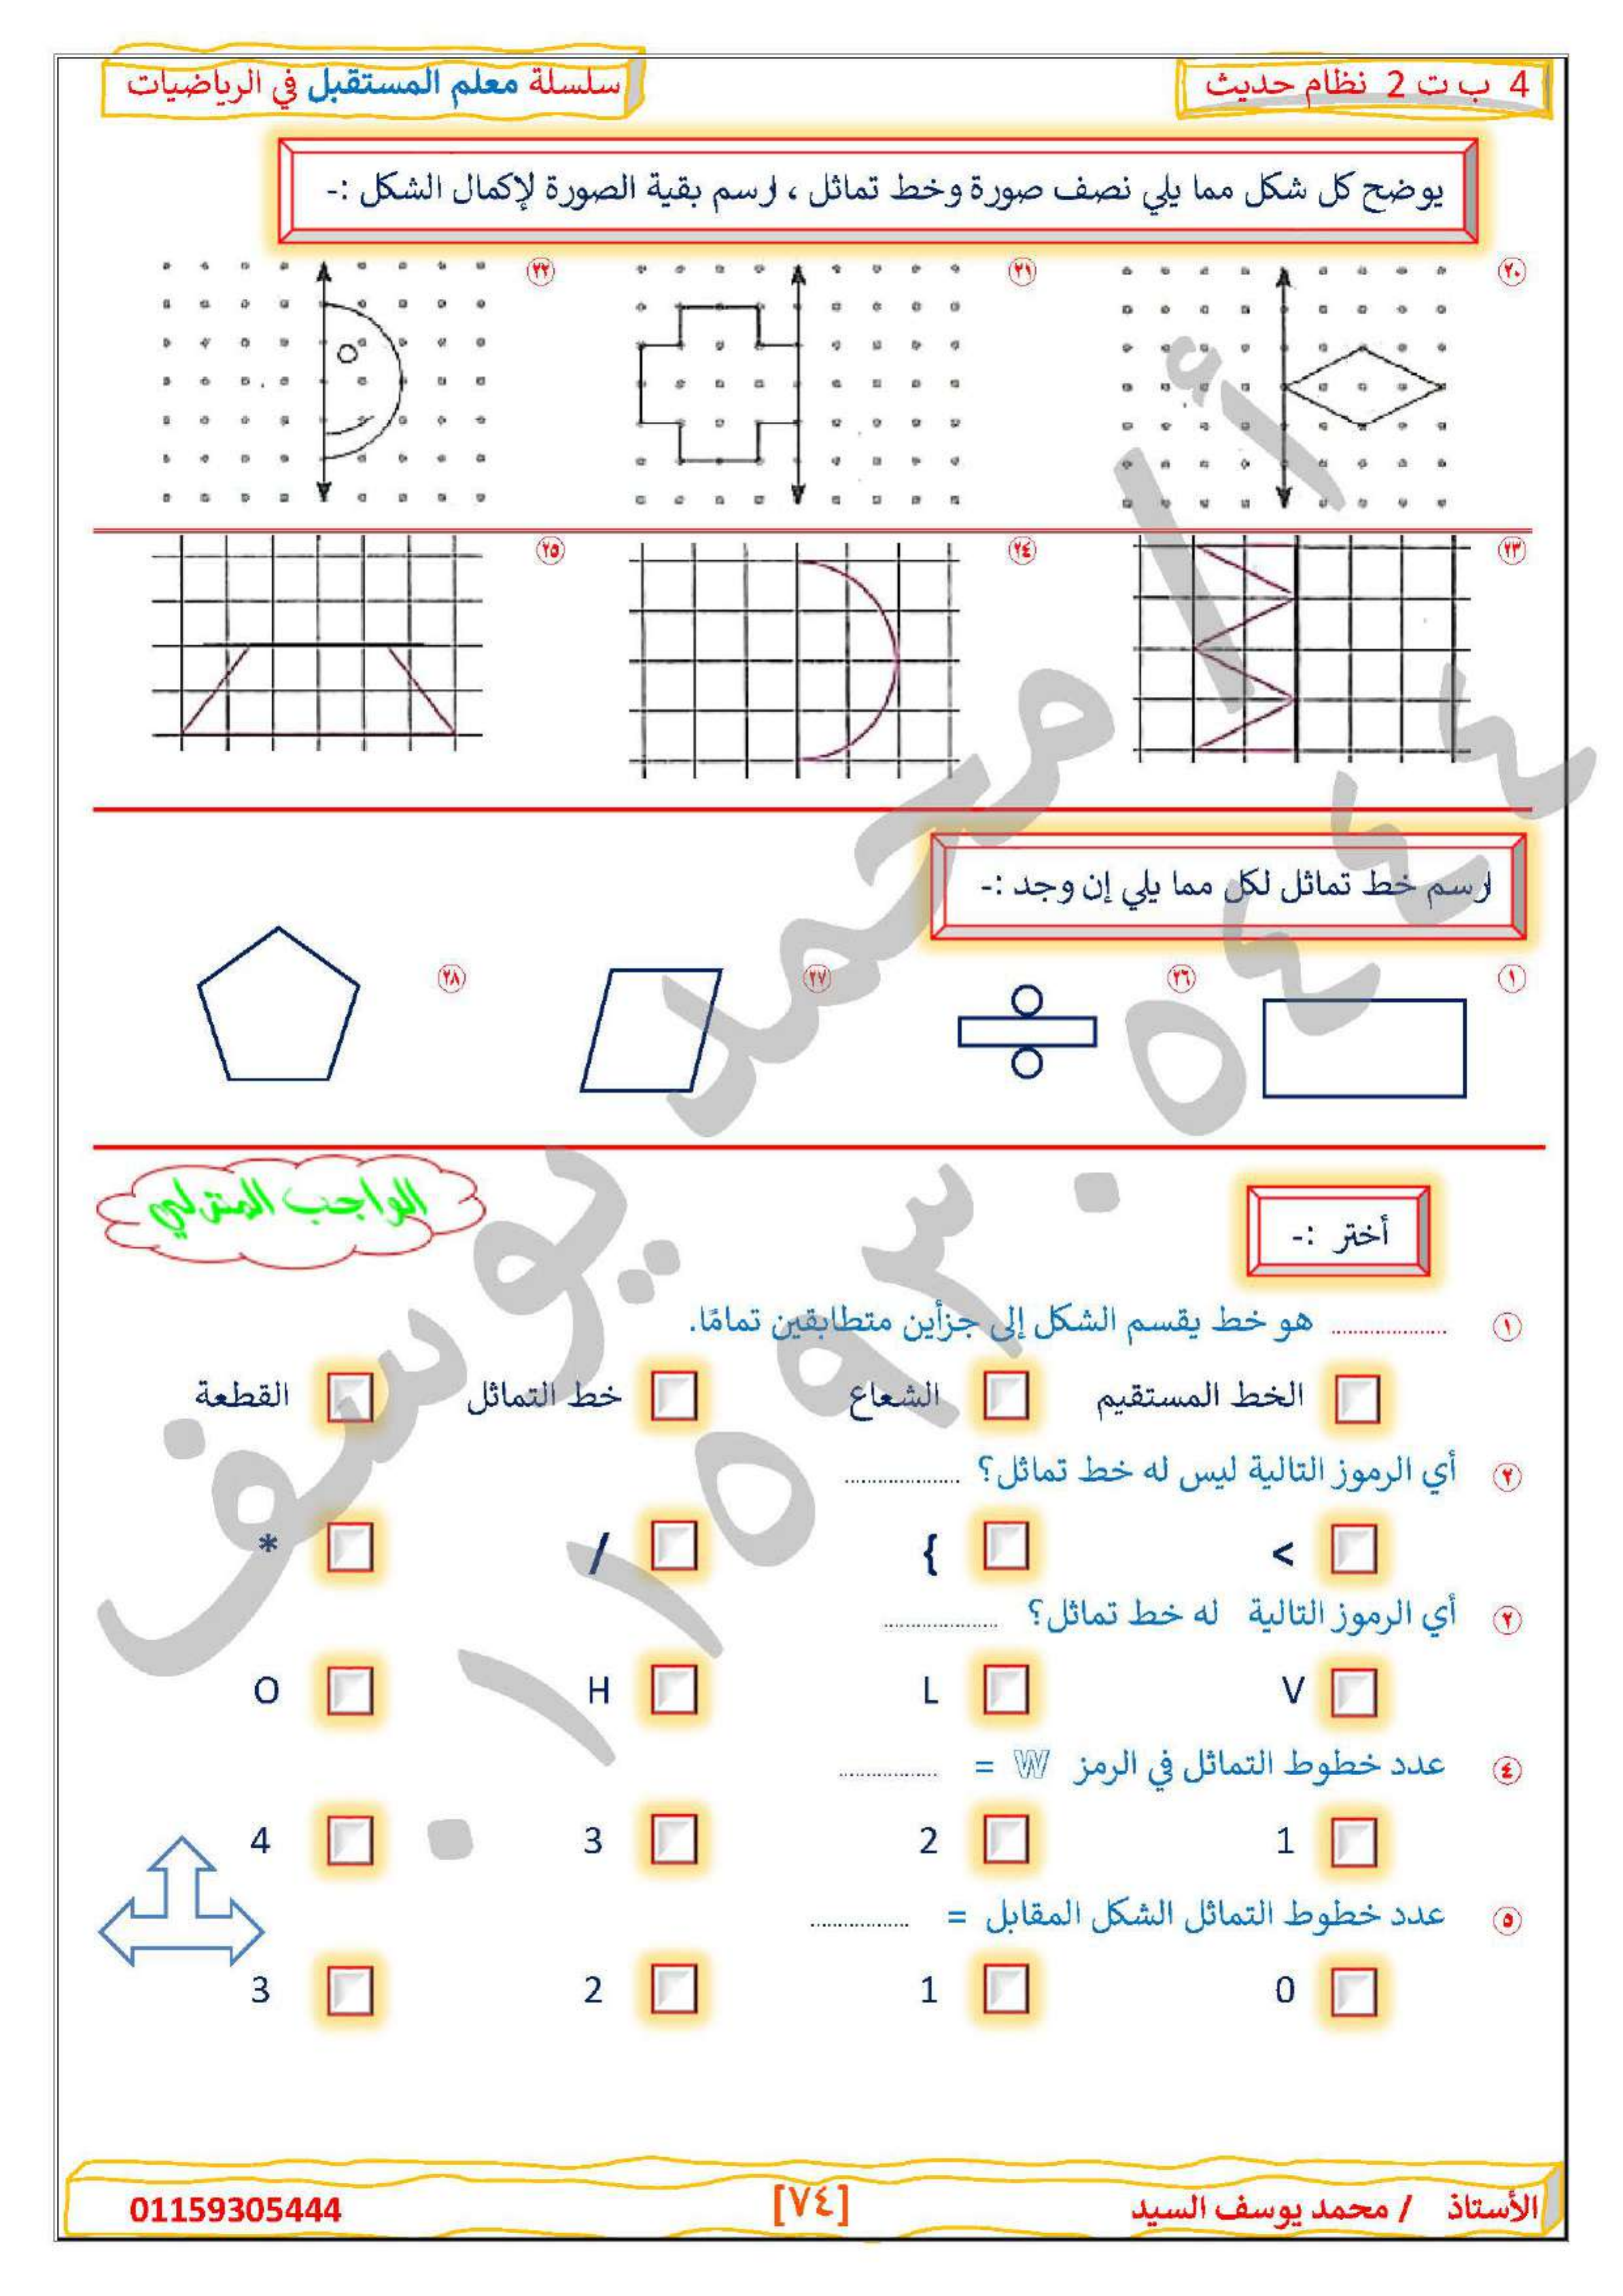 4 ب ت 2 نظام حديث
سلسلة معلم المستقبل في الرياضيات
يوضح كل شكل مما يلي نصف صورة وخط تماثل ، ارسم بقية الصورة لإكمال الشكل :-
٢٠ ٢١ ٢٢
٢٣ ٢٤ ٢٥
ارسم خط تماثل لكل مما يلي إن وجد :-
١ ٢٦ ٢٧ ٢٨
الواجب المنزلي
أختر :-
١ .................... هو خط يقسم الشكل إلى جزأين متطابقين تمامًا.
الخط المستقيم الشعاع خط التماثل القطعة
٢ أي الرموز التالية ليس له خط تماثل؟ ....................
< { / *
٢ أي الرموز التالية له خط تماثل؟ ....................
V L H O
٤ عدد خطوط التماثل في الرمز W = .................
1 2 3 4
٥ عدد خطوط التماثل الشكل المقابل = .................
0 1 2 3
أ / محمد يوسف
٠١١٥٩٣٠٥٤٤٤
الأستاذ / محمد يوسف السيد
[٧٤]
01159305444